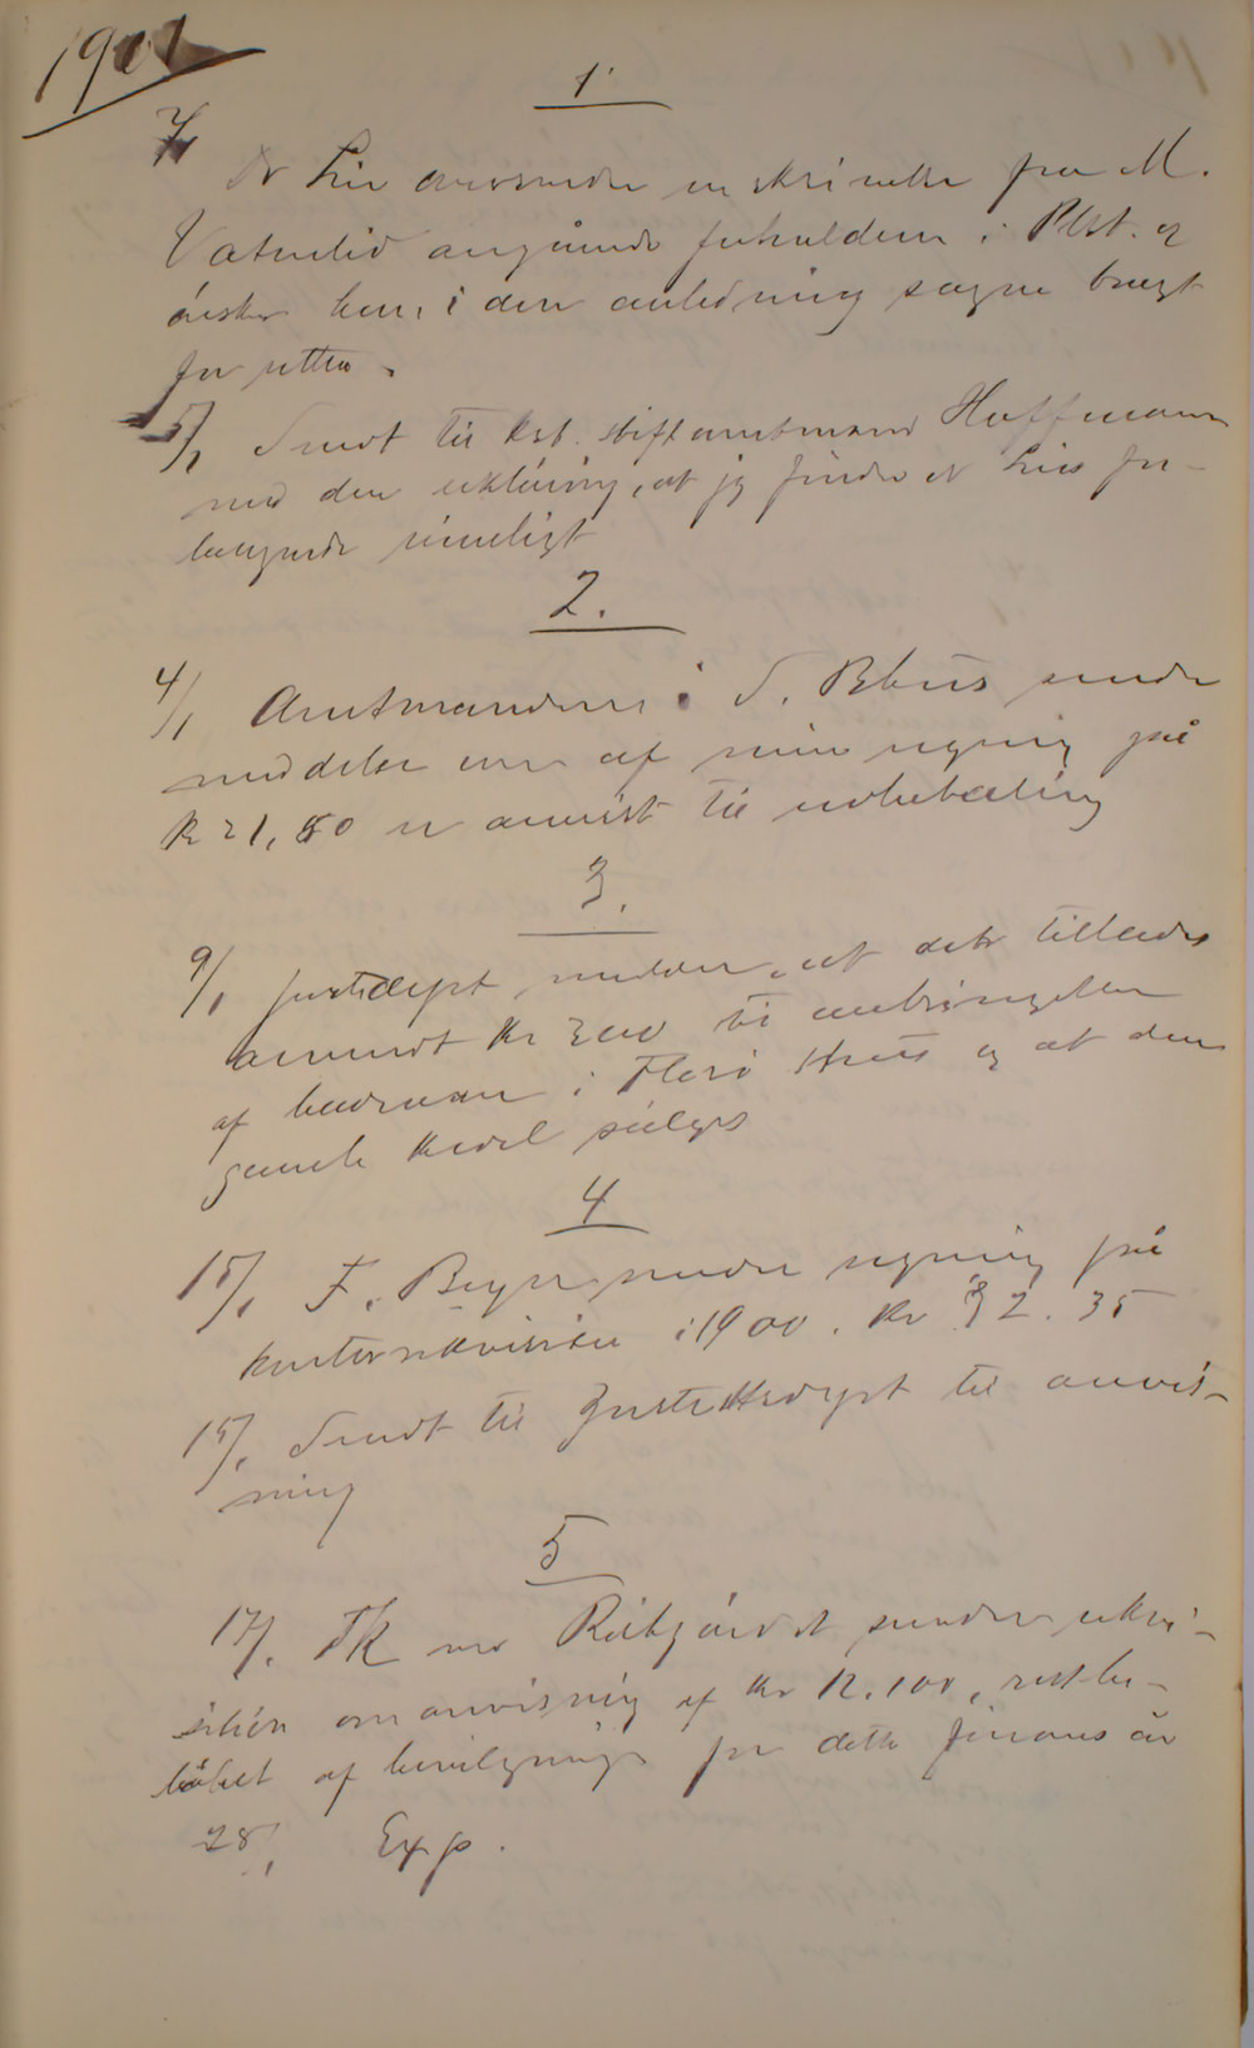 1901
1.
Dr Lie oversender en skrivelse fra M.
Vatnelid angående forholdene i Plst. og
ønsker han i den anledning sagen bragt
for retten.
5/1 Sendt til kst. stiftamtmand Hoffmann
med den erklæring, at jeg finder dr Lies for-
langende rimeligt
2.
4/1 Amtmanden i S. Bhus sender
meddelelse om at min regning på
K 21,80 er anvist til udbetaling
3.
9/1 Justdept melder, at det tillades
anvendt kr 300 til anbringelsen
af badevæsen i Florø Hus og at den
gamle kedel sælges
4
15/1 F. Beyer sender regning på
kontorrekvisita i 1900. kr 82.35
15/1 Sendt til Justitsdept til anvis-
ning
5
17/1 TK ved Reitgjærdet sender rekvi-
sition om anvisning af kr 12.100, restbe-
løbet af bevilgning for dette finansår
28/1 Exp.